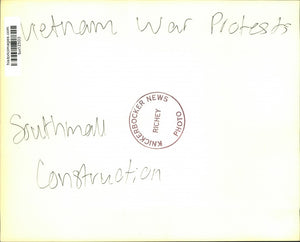 Vietnam War Protests
KNICKERBOCKER NEWS
RICHEY
PHOTO
Southmall
Construction